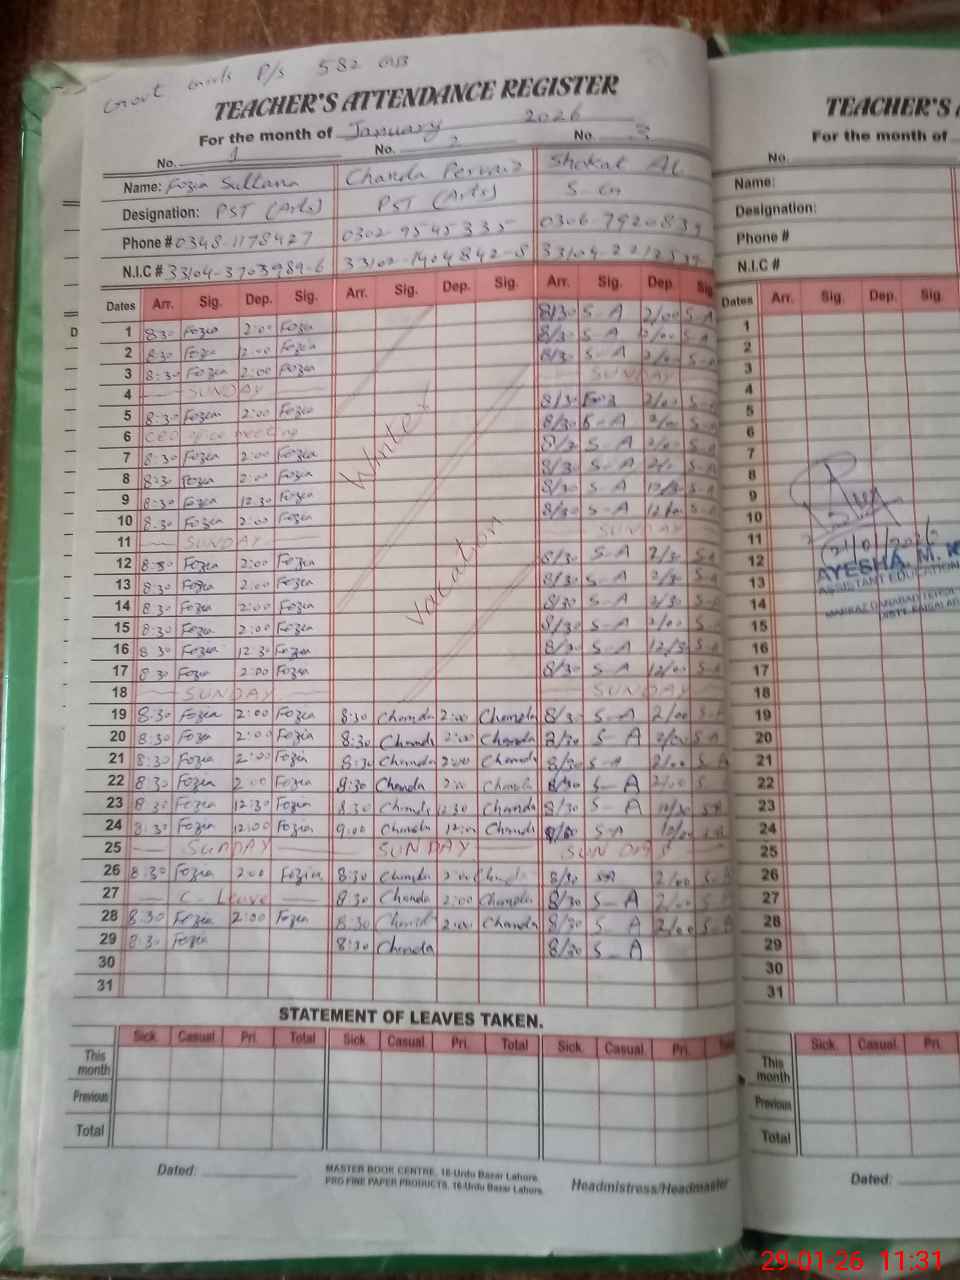 Govt Girls P/S 582 GB
TEACHER'S ATTENDANCE REGISTER
For the month of January 2026
No. 1 No. 2 No. 3
Name: Fozia Sultana Chanda Pervaiz Shokat Al
Designation: PST (Arts) PST (Arts)
Phone # 0348-1178427 0302-9545335 0306-7920839
N.I.C # 33104-3703989-6 33102-1404842-8
Dates Arr. Sig. Dep. Sig. Arr. Sig. Dep. Sig. Arr. Sig. Dep. Sig.
8/30 S-A 2/00 S-A
1 8:30 Fozia 2:00 Fozia 8/30 S-A 2/00 S-A
2 8:30 Fozia 2:00 Fozia 8/30 S-A 2/00 S-A
3 8:30 Fozia 2:00 Fozia SUNDAY
4 SUNDAY
5 8:30 Fozia 2:00 Fozia
6 CEO office meeting
7 8:30 Fozia 2:00 Fozia
8 8:30 Fozia 2:00 Fozia
9 8:30 Fozia 12:30 Fozia
10 8:30 Fozia 2:00 Fozia SUNDAY
11 SUNDAY
12 8:30 Fozia 2:00 Fozia 8/30 S-A 2/30 S-A
13 8:30 Fozia 2:00 Fozia 8/30 S-A 2/30 S-A
14 8:30 Fozia 2:00 Fozia 8/30 S-A 2/30 S-A
15 8:30 Fozia 2:00 Fozia 8/30 S-A 2/00 S-A
16 8:30 Fozia 12:30 Fozia 8/30 S-A 12/30 S-A
17 8:30 Fozia 2:00 Fozia 8/30 S-A 12/00 S-A
Winter
vacation
18 SUNDAY SUNDAY
19 8:30 Fozia 2:00 Fozia 8:30 Chanda 2:00 Chanda 8/30 S-A 2/00 S-A
20 8:30 Fozia 2:00 Fozia 8:30 Chanda 2:00 Chanda S-A 2/00 S-A
21 8:30 Fozia 2:00 Fozia 8:30 Chanda 2:00 Chanda 8/30 S-A 2/00 S-A
22 8:30 Fozia 2:00 Fozia 8:30 Chanda 2:00 Chanda 8/30 S-A 2/00
23 8:30 Fozia 12:30 Fozia 8:30 Chanda 12:30 Chanda 8/30 S-A
24 8:30 Fozia 12:00 Fozia 9:00 Chanda 12:00 Chanda S-A
25 SUNDAY SUNDAY SUNDAY
26 8:30 Fozia 2:00 Fozia 8:30 Chanda 2:00 Chanda 8/30 SA 2/00
27 C-Leave 8:30 Chanda 2:00 Chanda 8/30 S-A 2/00
28 8:30 Fozia 2:00 Fozia 8:30 Chanda 2:00 Chanda 8/30 S-A 2/00 S-A
29 8:30 Fozia 8:30 Chanda 8/30 S-A
30
31
STATEMENT OF LEAVES TAKEN.
Sick. Casual Pri. Total Sick. Casual. Pri. Total Sick. Casual. Pri.
This month
Previous
Total
Dated:
MASTER BOOK CENTRE, 16-Urdu Bazar Lahore.
PSO FINE PAPER PRODUCTS, 16-Urdu Bazar Lahore.
Headmistress/Headmaster
TEACHER'S
For the month of
No.
Name:
Designation:
Phone #
N.I.C #
Dates Arr. Sig. Dep. Sig.
1
2
3
4
5
6
7
8
9
10
11
12
13
14
15
16
17
18
19
20
21
22
23
24
25
26
27
28
29
30
31
AYESHA. M.
ASSISTANT EDUCATION
Sick. Casual. Pri.
This month
Previous
Total
Dated:
29-01-26 11:31